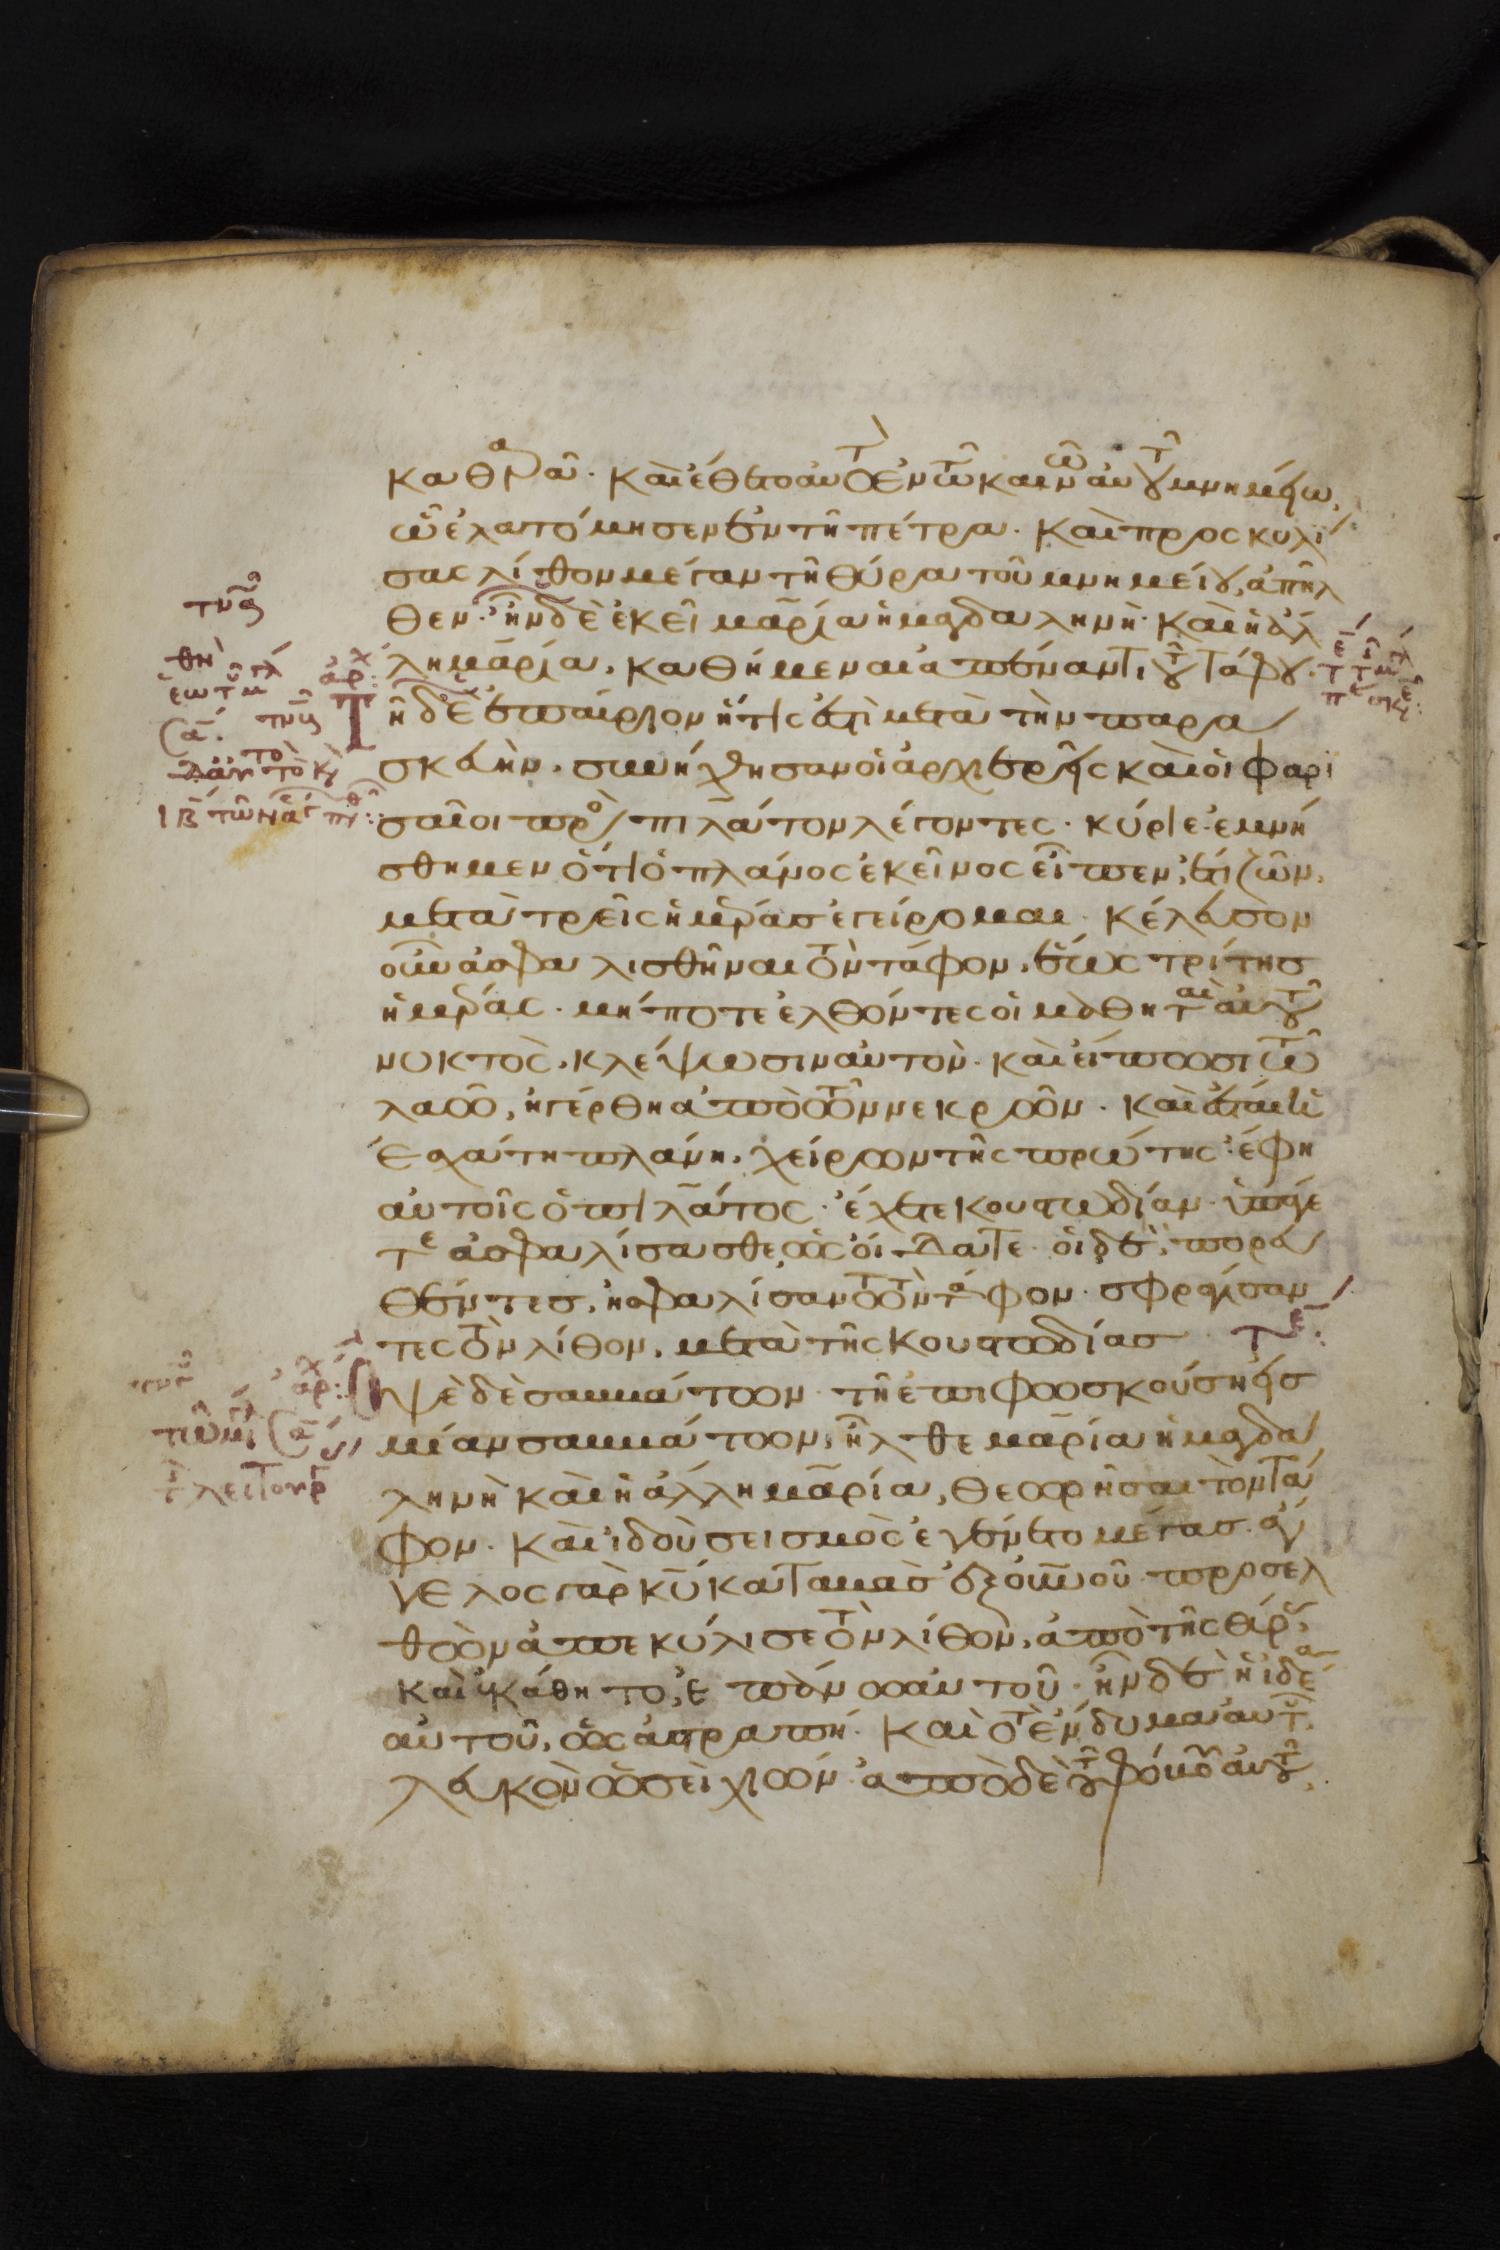 καθαρᾶ· καὶ ἔθετο αὐτὸ ἐν τῶ καινῶ αὐτοῦ μνημείω,
ὧ ἐλατόμησεν ἐν τῆ πέτρα· καὶ προσκυλί
σας λίθον μέγαν τῆ θύρα τοῦ μνημείου, ἀπῆλ
θεν· ἦν δὲ ἐκεῖ μαρία ἡ μαγδαληνὴ· καὶ ἡ ἄλ
λη μαρία, καθήμεναι ἀπέναντι τοῦ τάφου·
Τῆ δὲ ἐπαύριον ἥτις ἐστὶ μετὰ τὴν παρα
σκευὴν, συνήχθησαν οἱ ἀρχιερεῖς καὶ οἱ φαρι
σαῖοι πρὸς πιλάτον λέγοντες· κύριε ἐμνή
σθημεν ὅτι ὁ πλάνος ἐκεῖνος εἶπεν, ἔτι ζῶν,
μετὰ τρεῖς ἡμέρας ἐγείρομαι· κέλευσον
οὖν ἀσφαλισθῆναι τὸν τάφον, ἕως τρίτης
ἡμέρας· μήποτε ἐλθόντες οἱ μαθηταὶ αὐτοῦ
νυκτὸς, κλέψωσιν αὐτὸν· καὶ εἴπωσι τῶ
λαῶ, ἠγέρθη ἀπὸ τῶν νεκρῶν· καὶ ἔσται ἡ
ἐσχάτη πλάνη, χείρων τῆς πρώτης· ἔφη
αὐτοῖς ὁ πιλάτος· ἔχετε κουστωδίαν· ὑπάγε
τε ἀσφαλίσασθε, ὡς οἴδατε· οἱ δὲ, πορευ
θέντες, ἠσφαλίσαντο τὸν τάφον· σφραγίσαν
τες τὸν λίθον, μετὰ τῆς κουστωδίας
Ὀψὲ δὲ σαββάτων· τῆ ἐπιφωσκούση εἰς
μίαν σαββάτων, ἦλθε μαρία ἡ μαγδα
ληνὴ καὶ ἡ ἄλλη μαρία, θεωρῆσαι τὸν τά
φον· καὶ ἰδοὺ σεισμὸς ἐγένετο μέγας· ἄγ
γελος γὰρ κυ καταβὰς ἐξ οὐνοῦ· προσελ
θὼν ἀπεκύλισε τὸν λίθον, ἀπὸ τῆς θύρας,
καὶ ἐκάθητο, ἐπάνω αὐτοῦ· ἦν δὲ ἡ ἰδέα
αὐτοῦ, ὡς ἀστραπὴ· καὶ τὸ ἔνδυμα αὐτοῦ
λευκὸν ὡσεὶ χιών· ἀπὸ δὲ τοῦ φόβου αὐτοῦ,